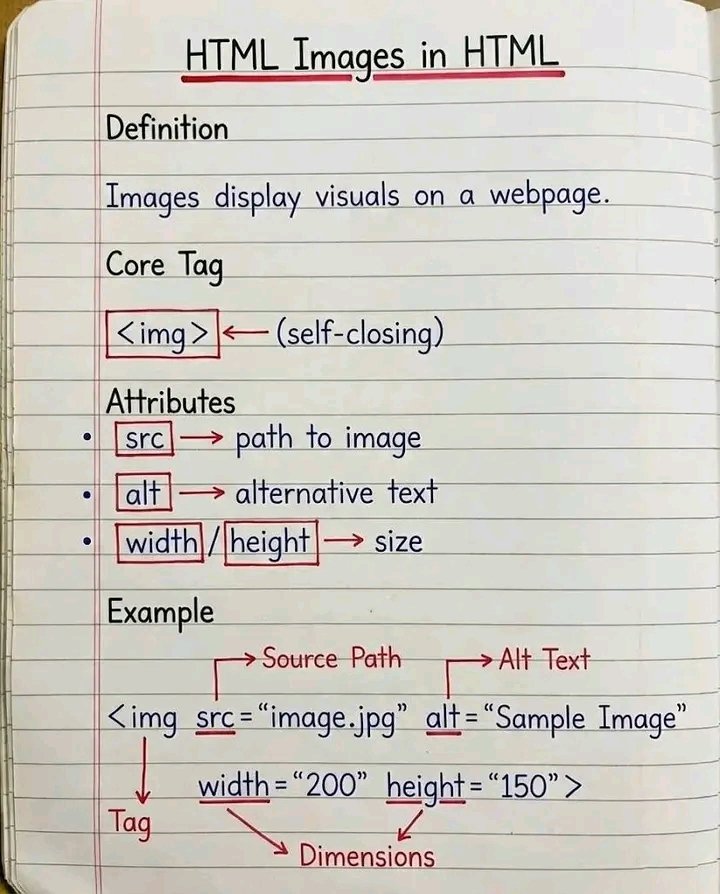 HTML Images in HTML
Definition
Images display visuals on a webpage.
Core Tag
<img> ← (self-closing)
Attributes
• src → path to image
• alt → alternative text
• width / height → size
Example
Source Path Alt Text
<img src = “image.jpg” alt = “Sample Image”
width = “200” height = “150” >
Tag
Dimensions